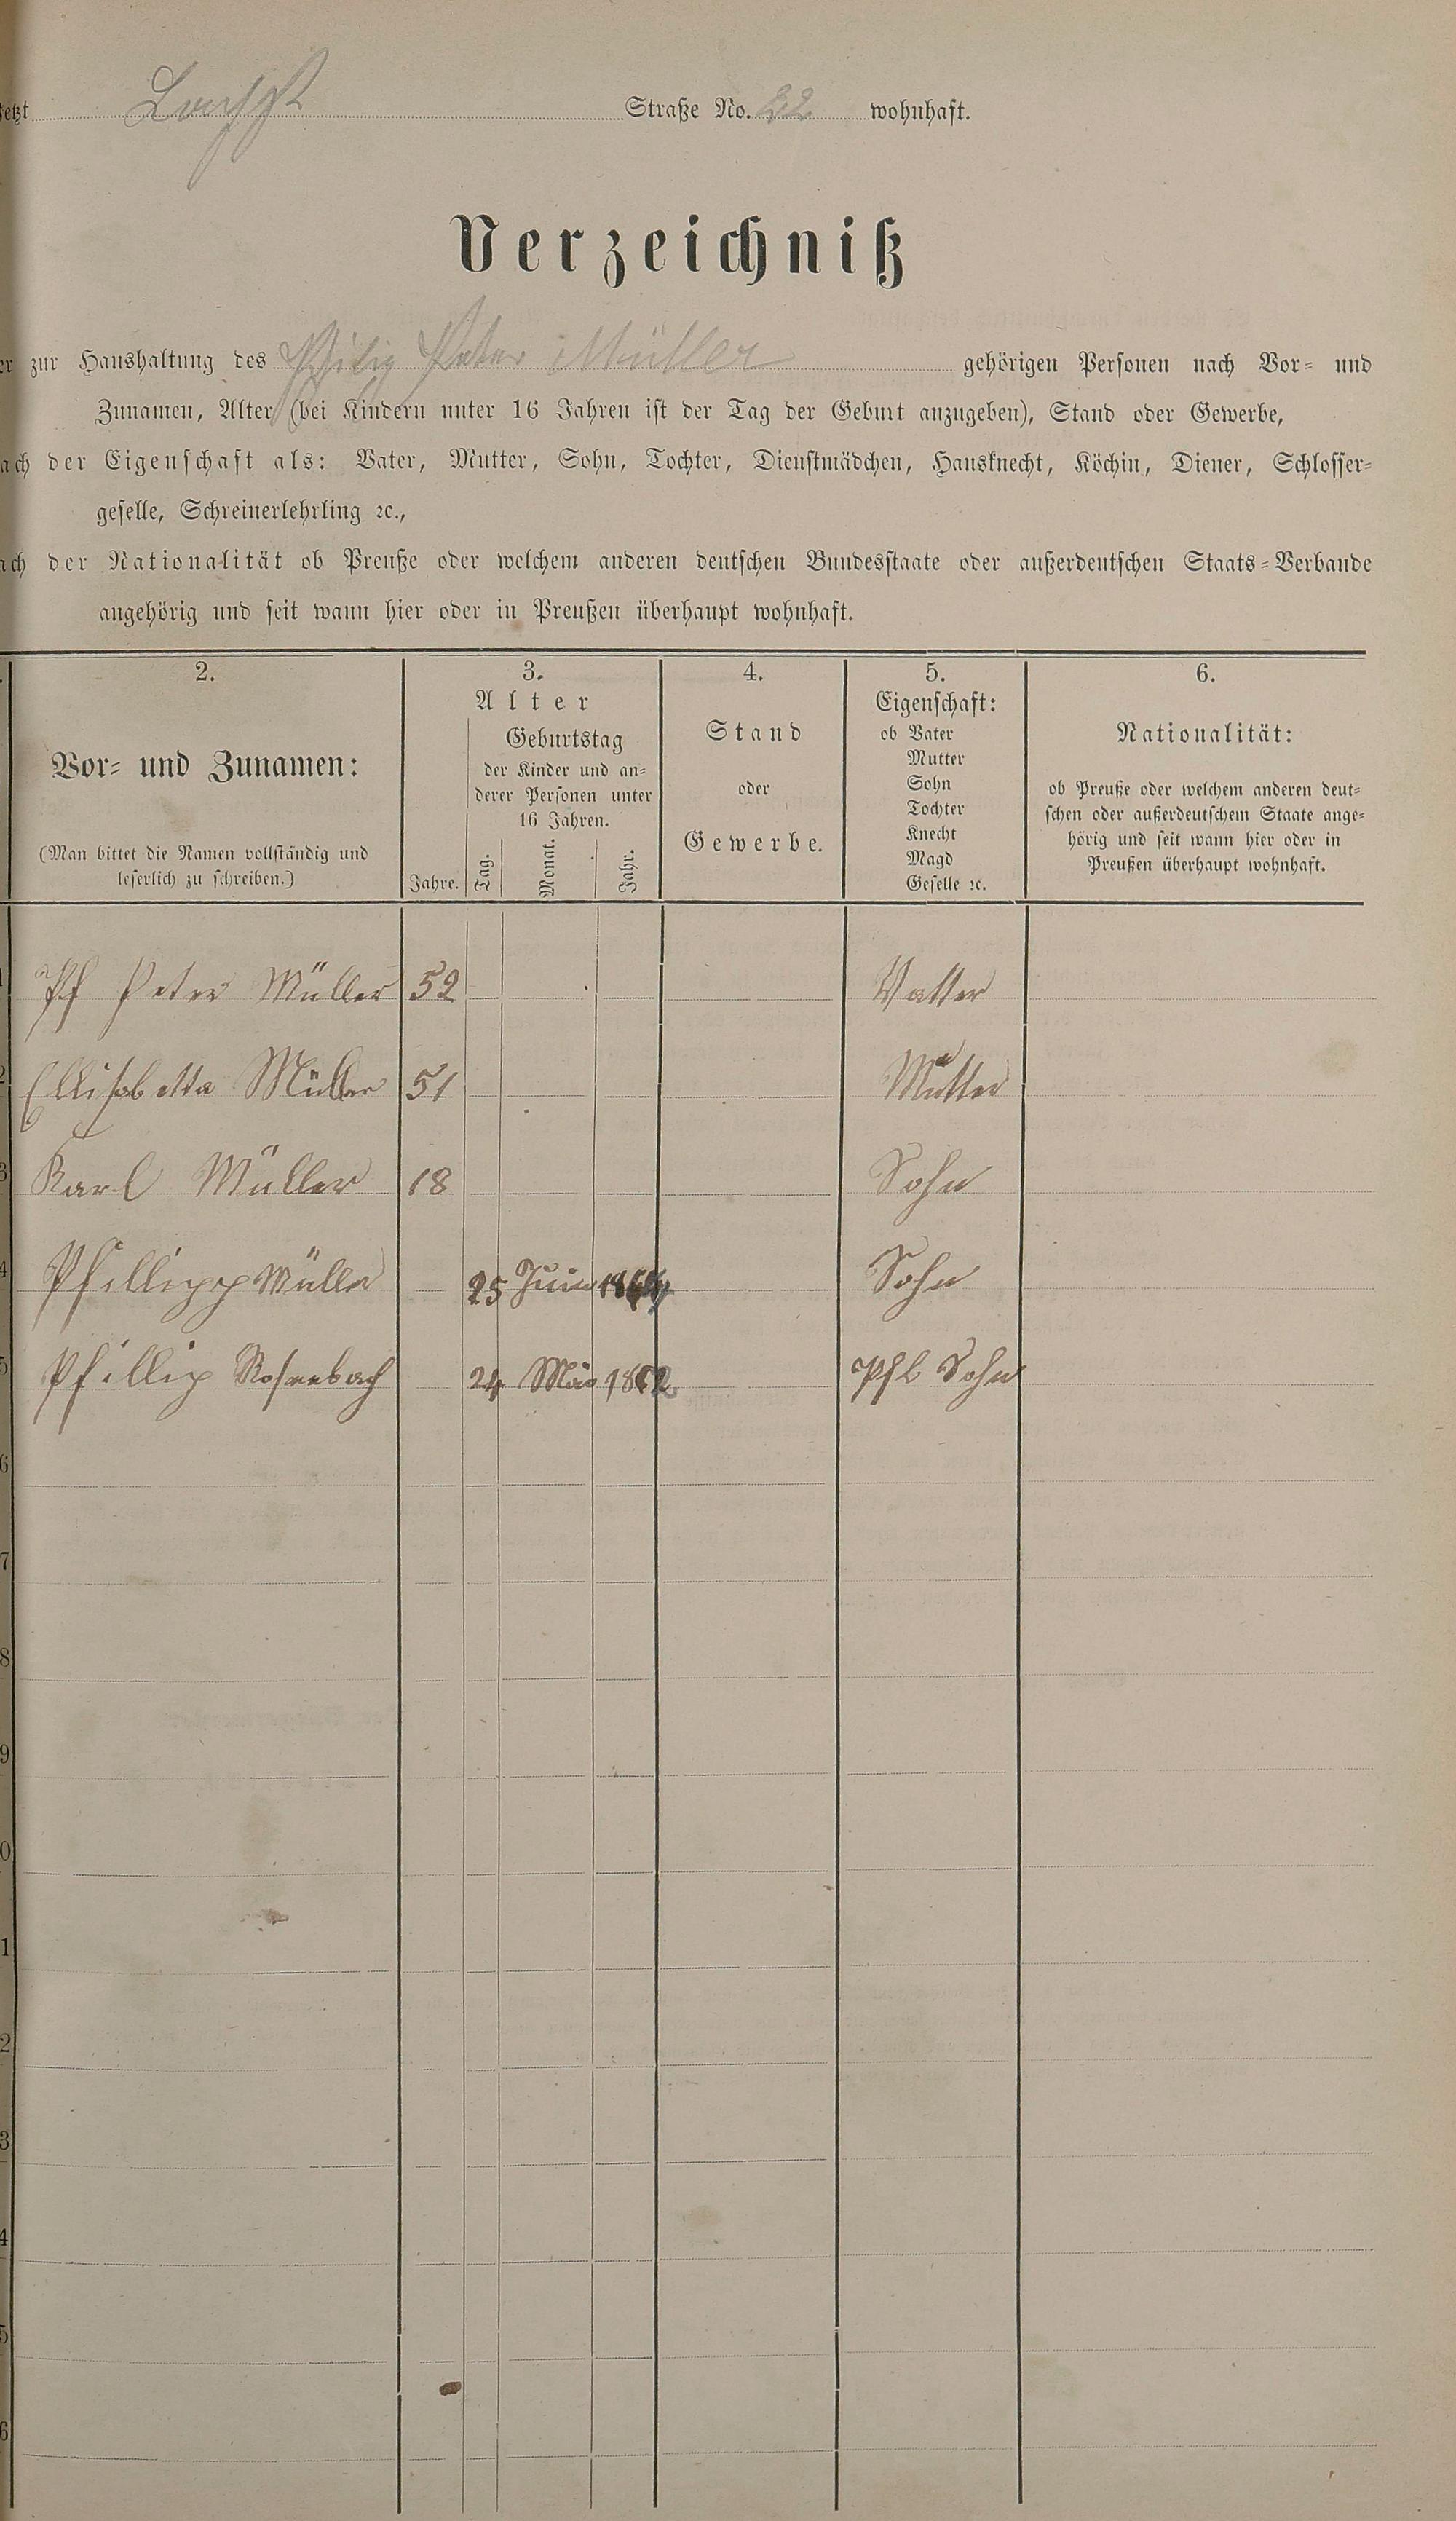 jetzt Straße No. 32 wohnhaft.
Verzeichniß
er zur Haushaltung des Philip Peter Müller gehörigen Personen nach Vor- und
Zunamen, Alter (bei Kindern unter 16 Jahren ist der Tag der Geburt anzugeben), Stand oder Gewerbe,
ach der Eigenschaft als: Vater, Mutter, Sohn, Tochter, Dienstmädchen, Hausknecht, Köchin, Diener, Schlosser-
geselle, Schreinerlehrling ꝛc.,
ach der Nationalität ob Preuße oder welchem anderen deutschen Bundesstaate oder außerdeutschen Staats-Verbande
angehörig und seit wann hier oder in Preußen überhaupt wohnhaft.
2.
Vor- und Zunamen:
(Man bittet die Namen vollständig und
leserlich zu schreiben.)
3.
Alter
Geburtstag
der Kinder und an-
derer Personen unter
16 Jahren.
Jahre. Tag. Monat. Jahr.
4.
Stand
oder
Gewerbe.
5.
Eigenschaft:
ob Vater
Mutter
Sohn
Tochter
Knecht
Magd
Geselle ꝛc.
6.
Nationalität:
ob Preuße oder welchem anderen deut-
schen oder außerdeutschem Staate ange-
hörig und seit wann hier oder in
Preußen überhaupt wohnhaft.
1 Ph Peter Müller 52 Vatter
2 Ellisabetta Müller 51 Mutter
3 Karl Müller 18 Sohn
4 Phillipp Müller 25 Juni Sohn
5 Phillip Rosenbach 24 1862 Pfl Sohn
6
7
8
9
0
1
2
3
4
5
6